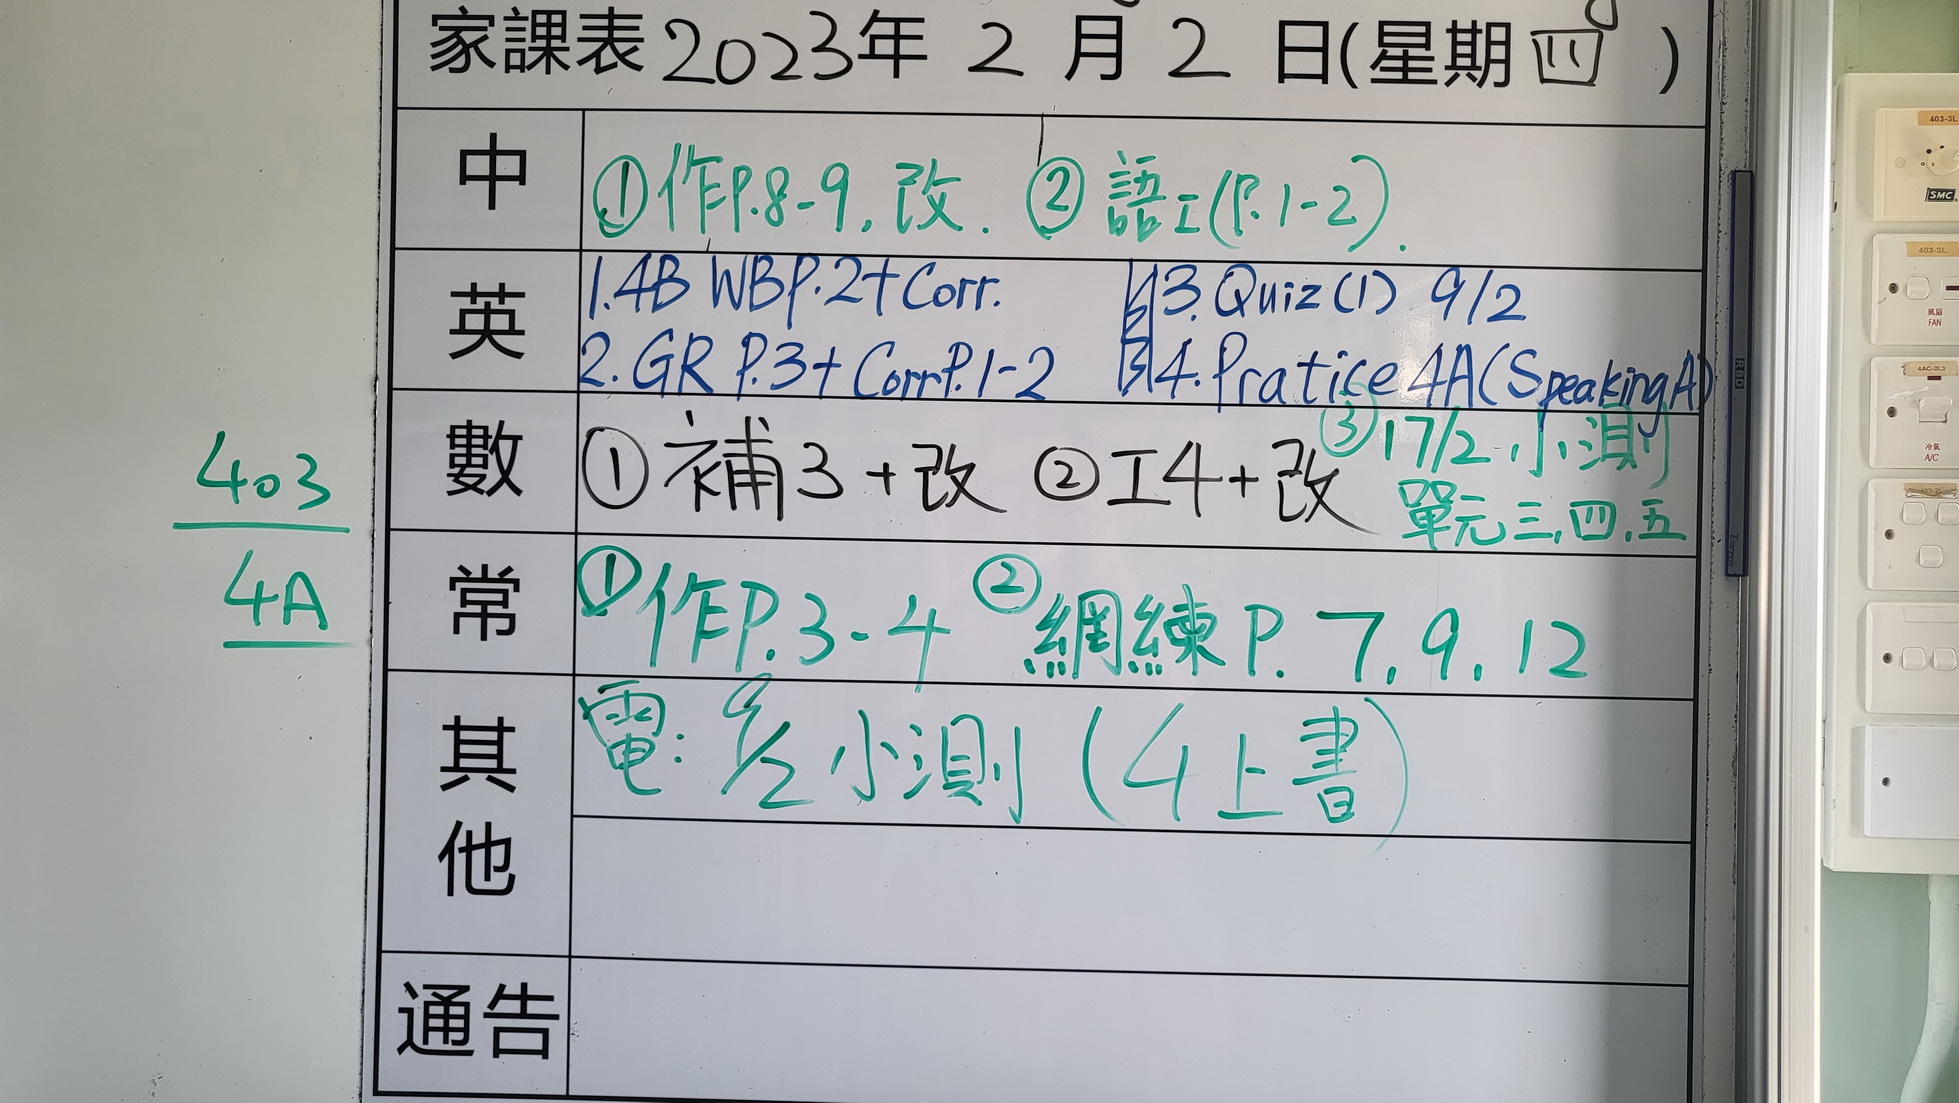 家課表2023年 2 月 2 日(星期四)
中
①作P.8-9,改. ②語工(P.1-2).
英
1.4B WBP.2+Corr.
2.GR P.3+CorrP.1-2
3.Quiz(1) 9/2
4.Pratice 4A(SpeakingA)
數
①補3+改 ②工4+改
③17/2小測
單元三,四,五
常
①作P.3-4 ②網練P.7,9,12
其他
電:9/2小測(4上書)
通告
403
4A
403-3L
SMC
403-3L
風扇
FAN
4AC-2L3
冷氣
A/C